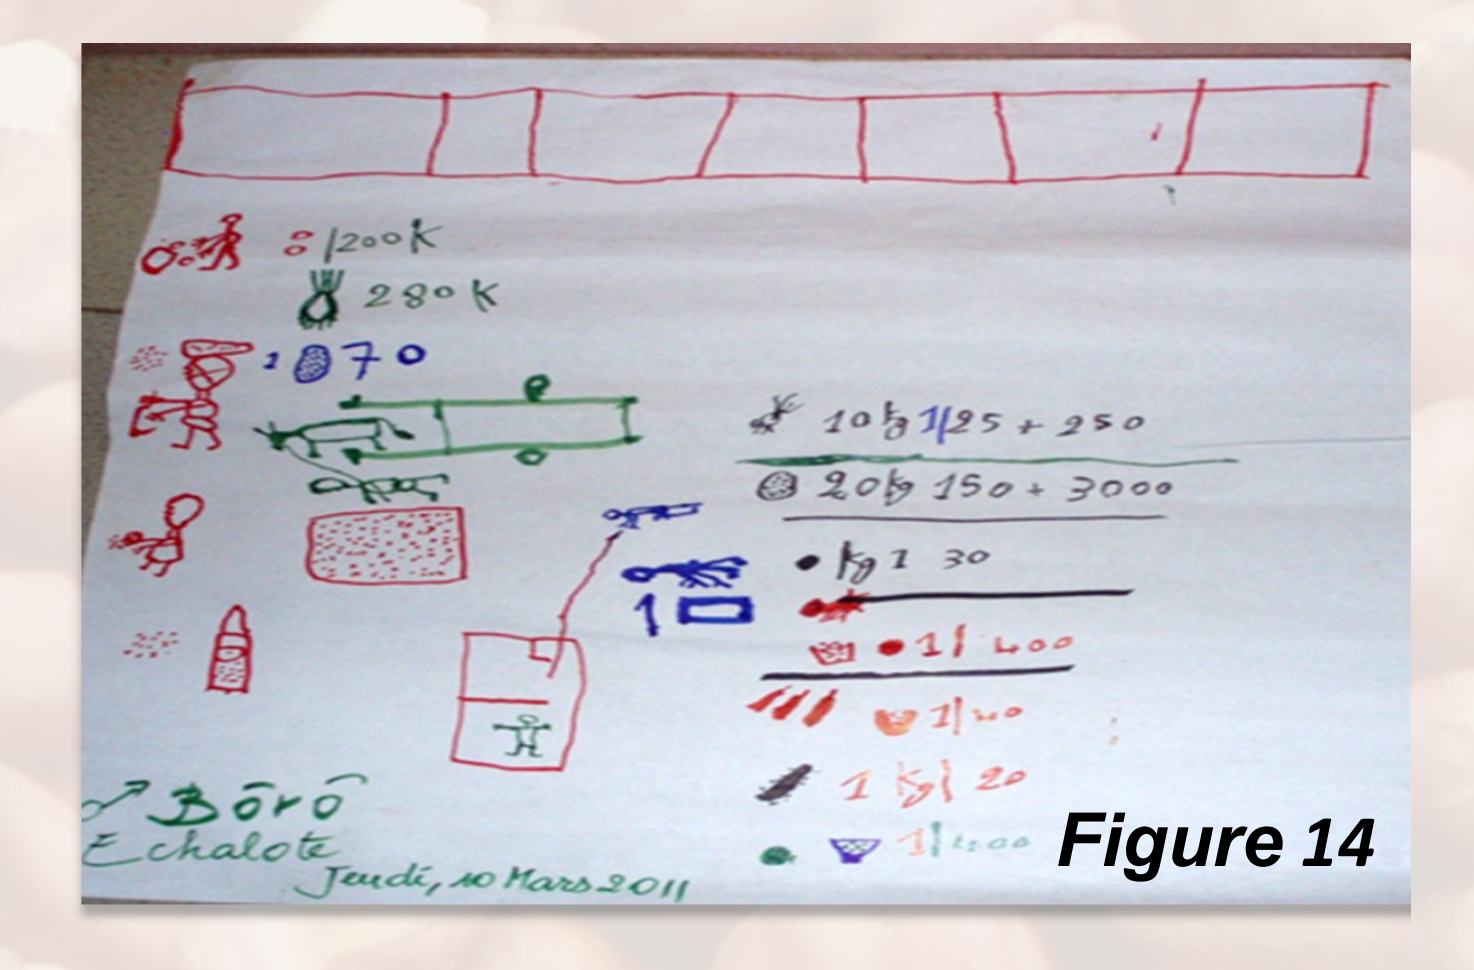 1200K
280K
1 70
10 kg 1/25 + 250
20kg 150 + 3000
kg 1 30
1
1/ 400
1/40
1 kg/ 20
1/400
Bôrô
Echalote
Jeudi, 10 Mars 2011
Figure 14